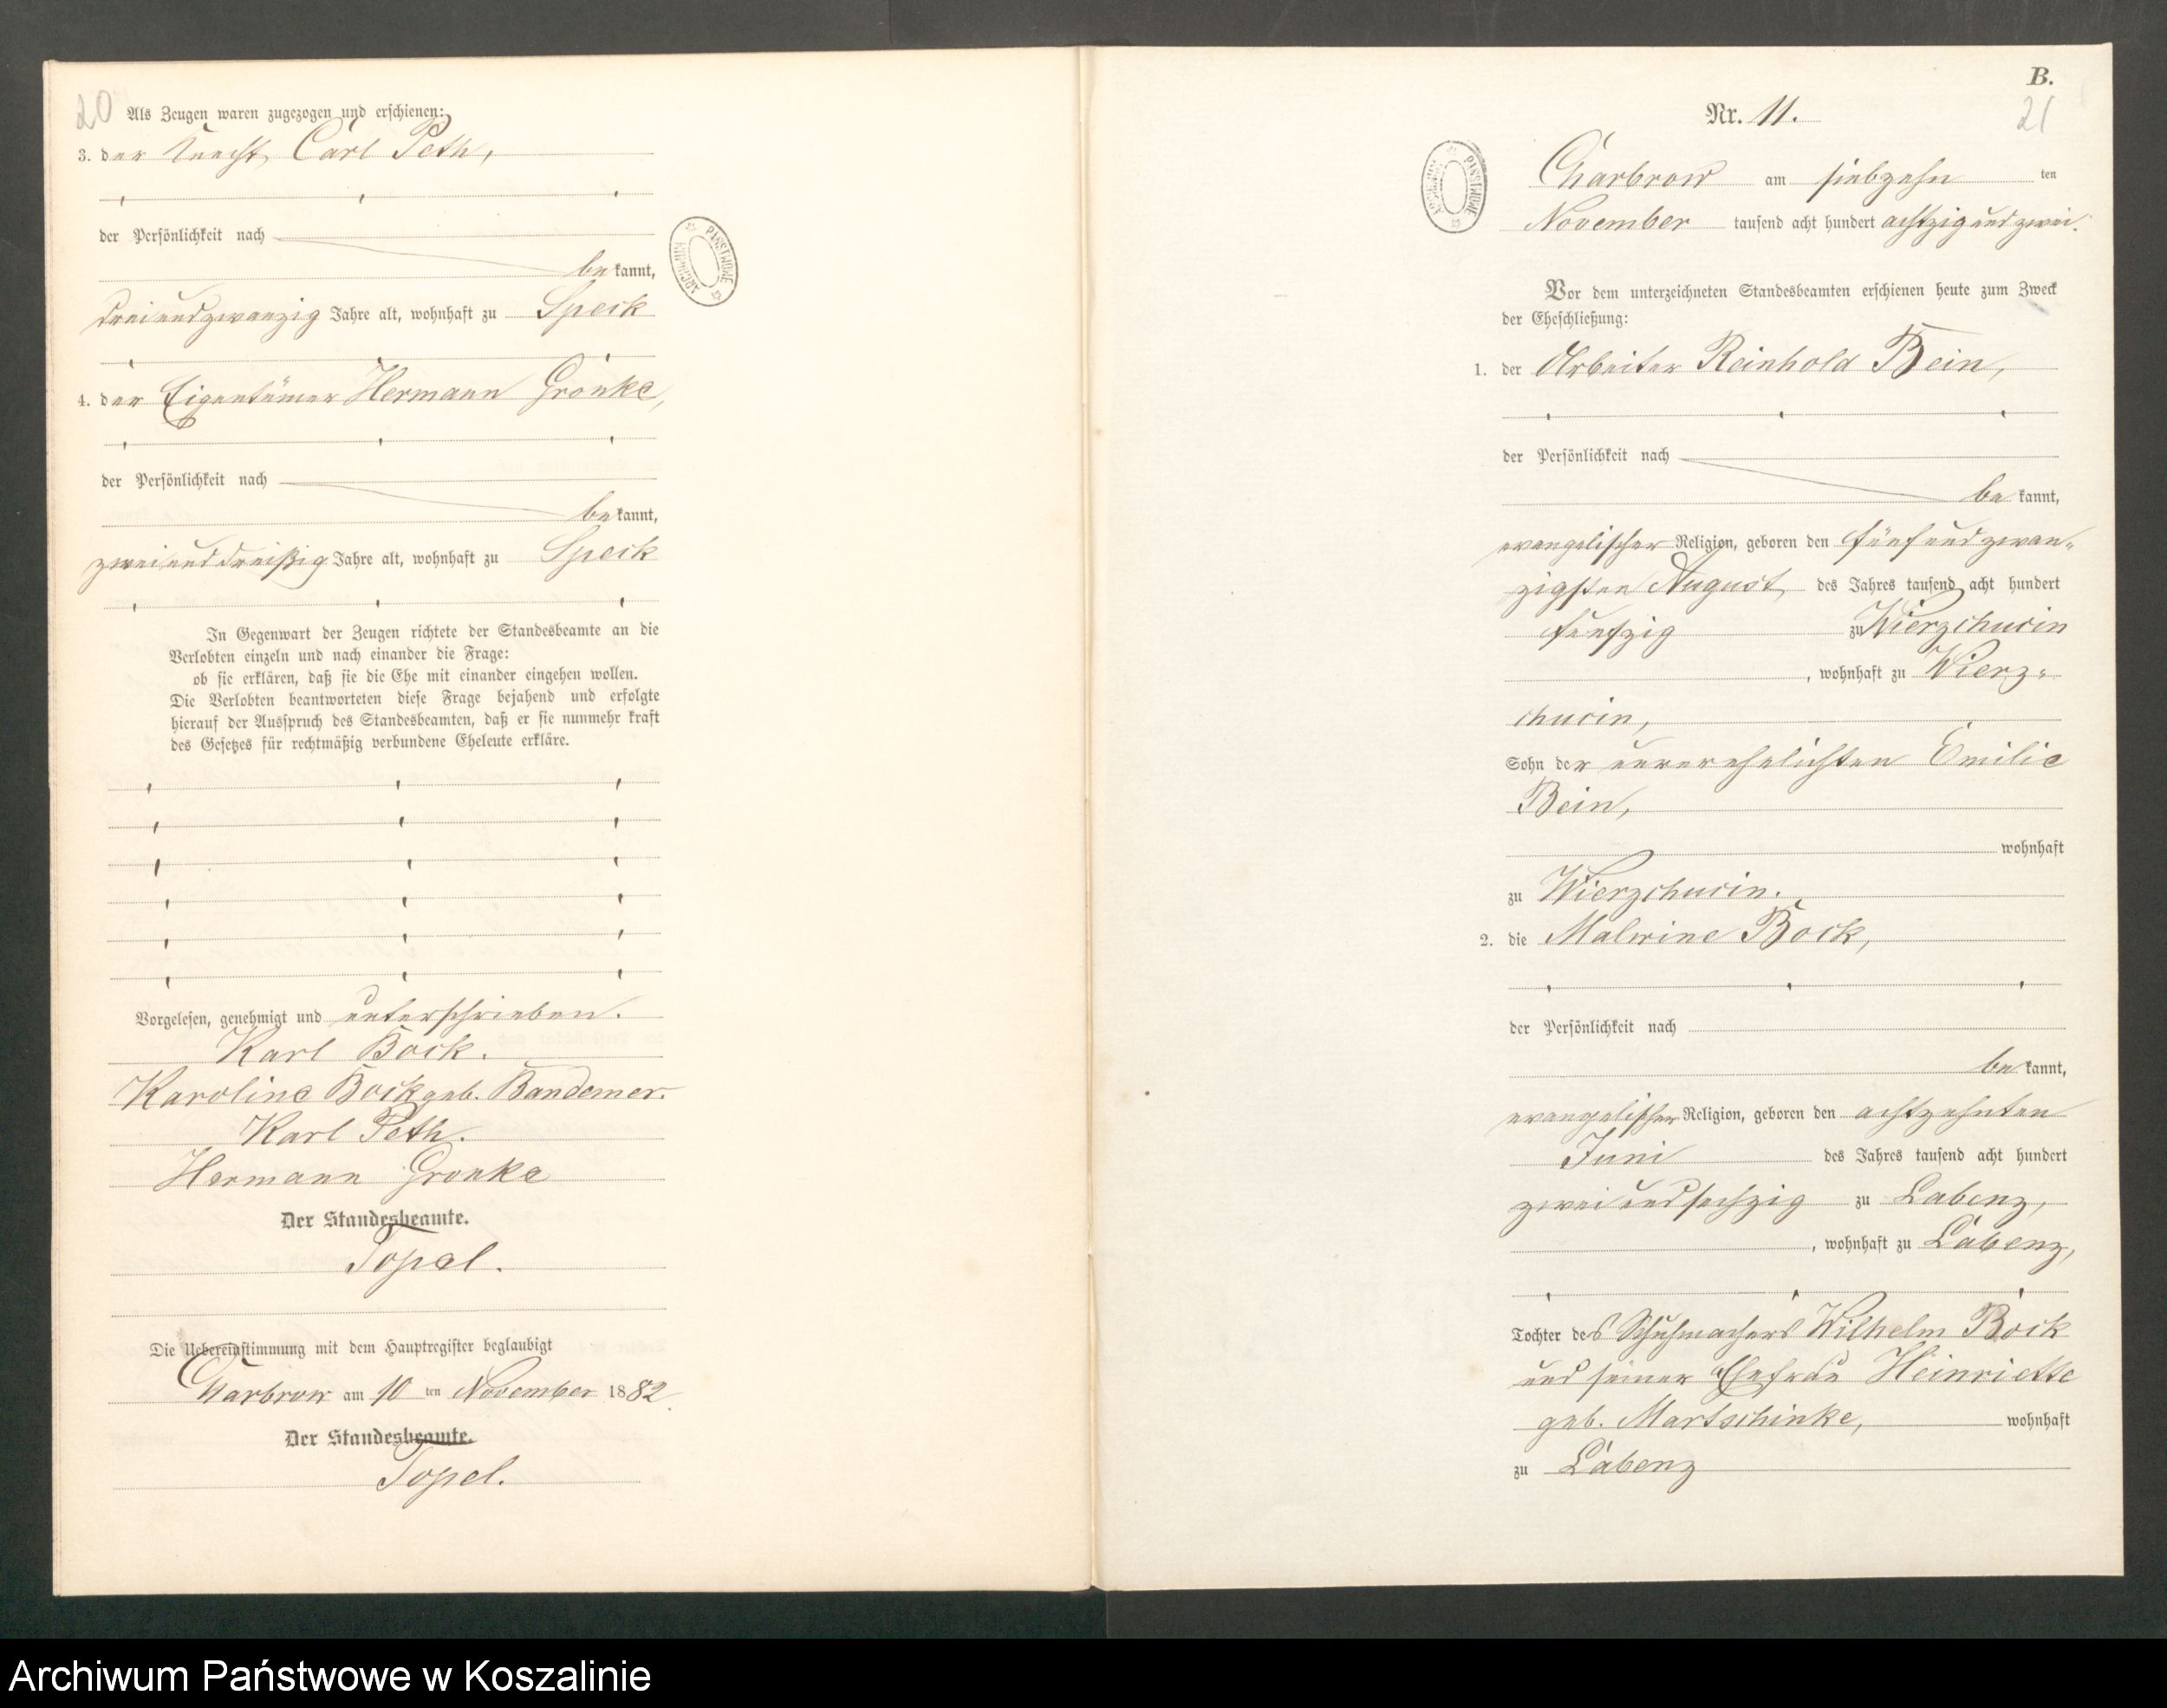 20
Als Zeugen waren zugezogen und erschienen:
3. der Knecht Carl Peth,
der Persönlichkeit nach
bekannt,
dreiundzwanzig Jahre alt, wohnhaft zu Speck
4. der Eigentümer Hermann Gronke,
der Persönlichkeit nach
bekannt,
zweiunddreißig Jahre alt, wohnhaft zu Speck
In Gegenwart der Zeugen richtete der Standesbeamte an die
Verlobten einzeln und nach einander die Frage:
ob sie erklären, daß sie die Ehe mit einander eingehen wollen.
Die Verlobten beantworteten diese Frage bejahend und erfolgte
hierauf der Ausspruch des Standesbeamten, daß er sie nunmehr kraft
des Gesetzes für rechtmäßig verbundene Eheleute erkläre.
Vorgelesen, genehmigt und unterschrieben.
Karl Bock.
Karoline Bock geb. Bandemer.
Karl Peth.
Hermann Gronke
Der Standesbeamte.
Topel.
Die Uebereinstimmung mit dem Hauptregister beglaubigt
Charbrow am 10 ten November 1882.
Der Standesbeamte.
Topel.
ARCHIWUM PAŃSTWOWE
B.
21
Nr. 11.
ARCHIWUM PAŃSTWOWE
Charbrow am siebzehn ten
November tausend acht hundert achtzig und zwei.
Vor dem unterzeichneten Standesbeamten erschienen heute zum Zweck
der Eheschließung:
1. der Arbeiter Reinhold Bein,
der Persönlichkeit nach
bekannt,
evangelischer Religion, geboren den fünfundzwan-
zigsten August des Jahres tausend acht hundert
fünfzig zu Wierzchucin
, wohnhaft zu Wierz-
chucin,
Sohn der unverehelichten Emilie
Bein,
wohnhaft
zu Wierzchucin.
2. die Malwine Bock,
der Persönlichkeit nach
bekannt,
evangelischer Religion, geboren den achtzehnten
Juni des Jahres tausend acht hundert
zweiundsechzig zu Labenz,
, wohnhaft zu Labenz,
Tochter des Schuhmachers Wilhelm Bock
und seiner Ehefrau Heinriette
geb. Martschinke, wohnhaft
zu Labenz
Archiwum Państwowe w Koszalinie